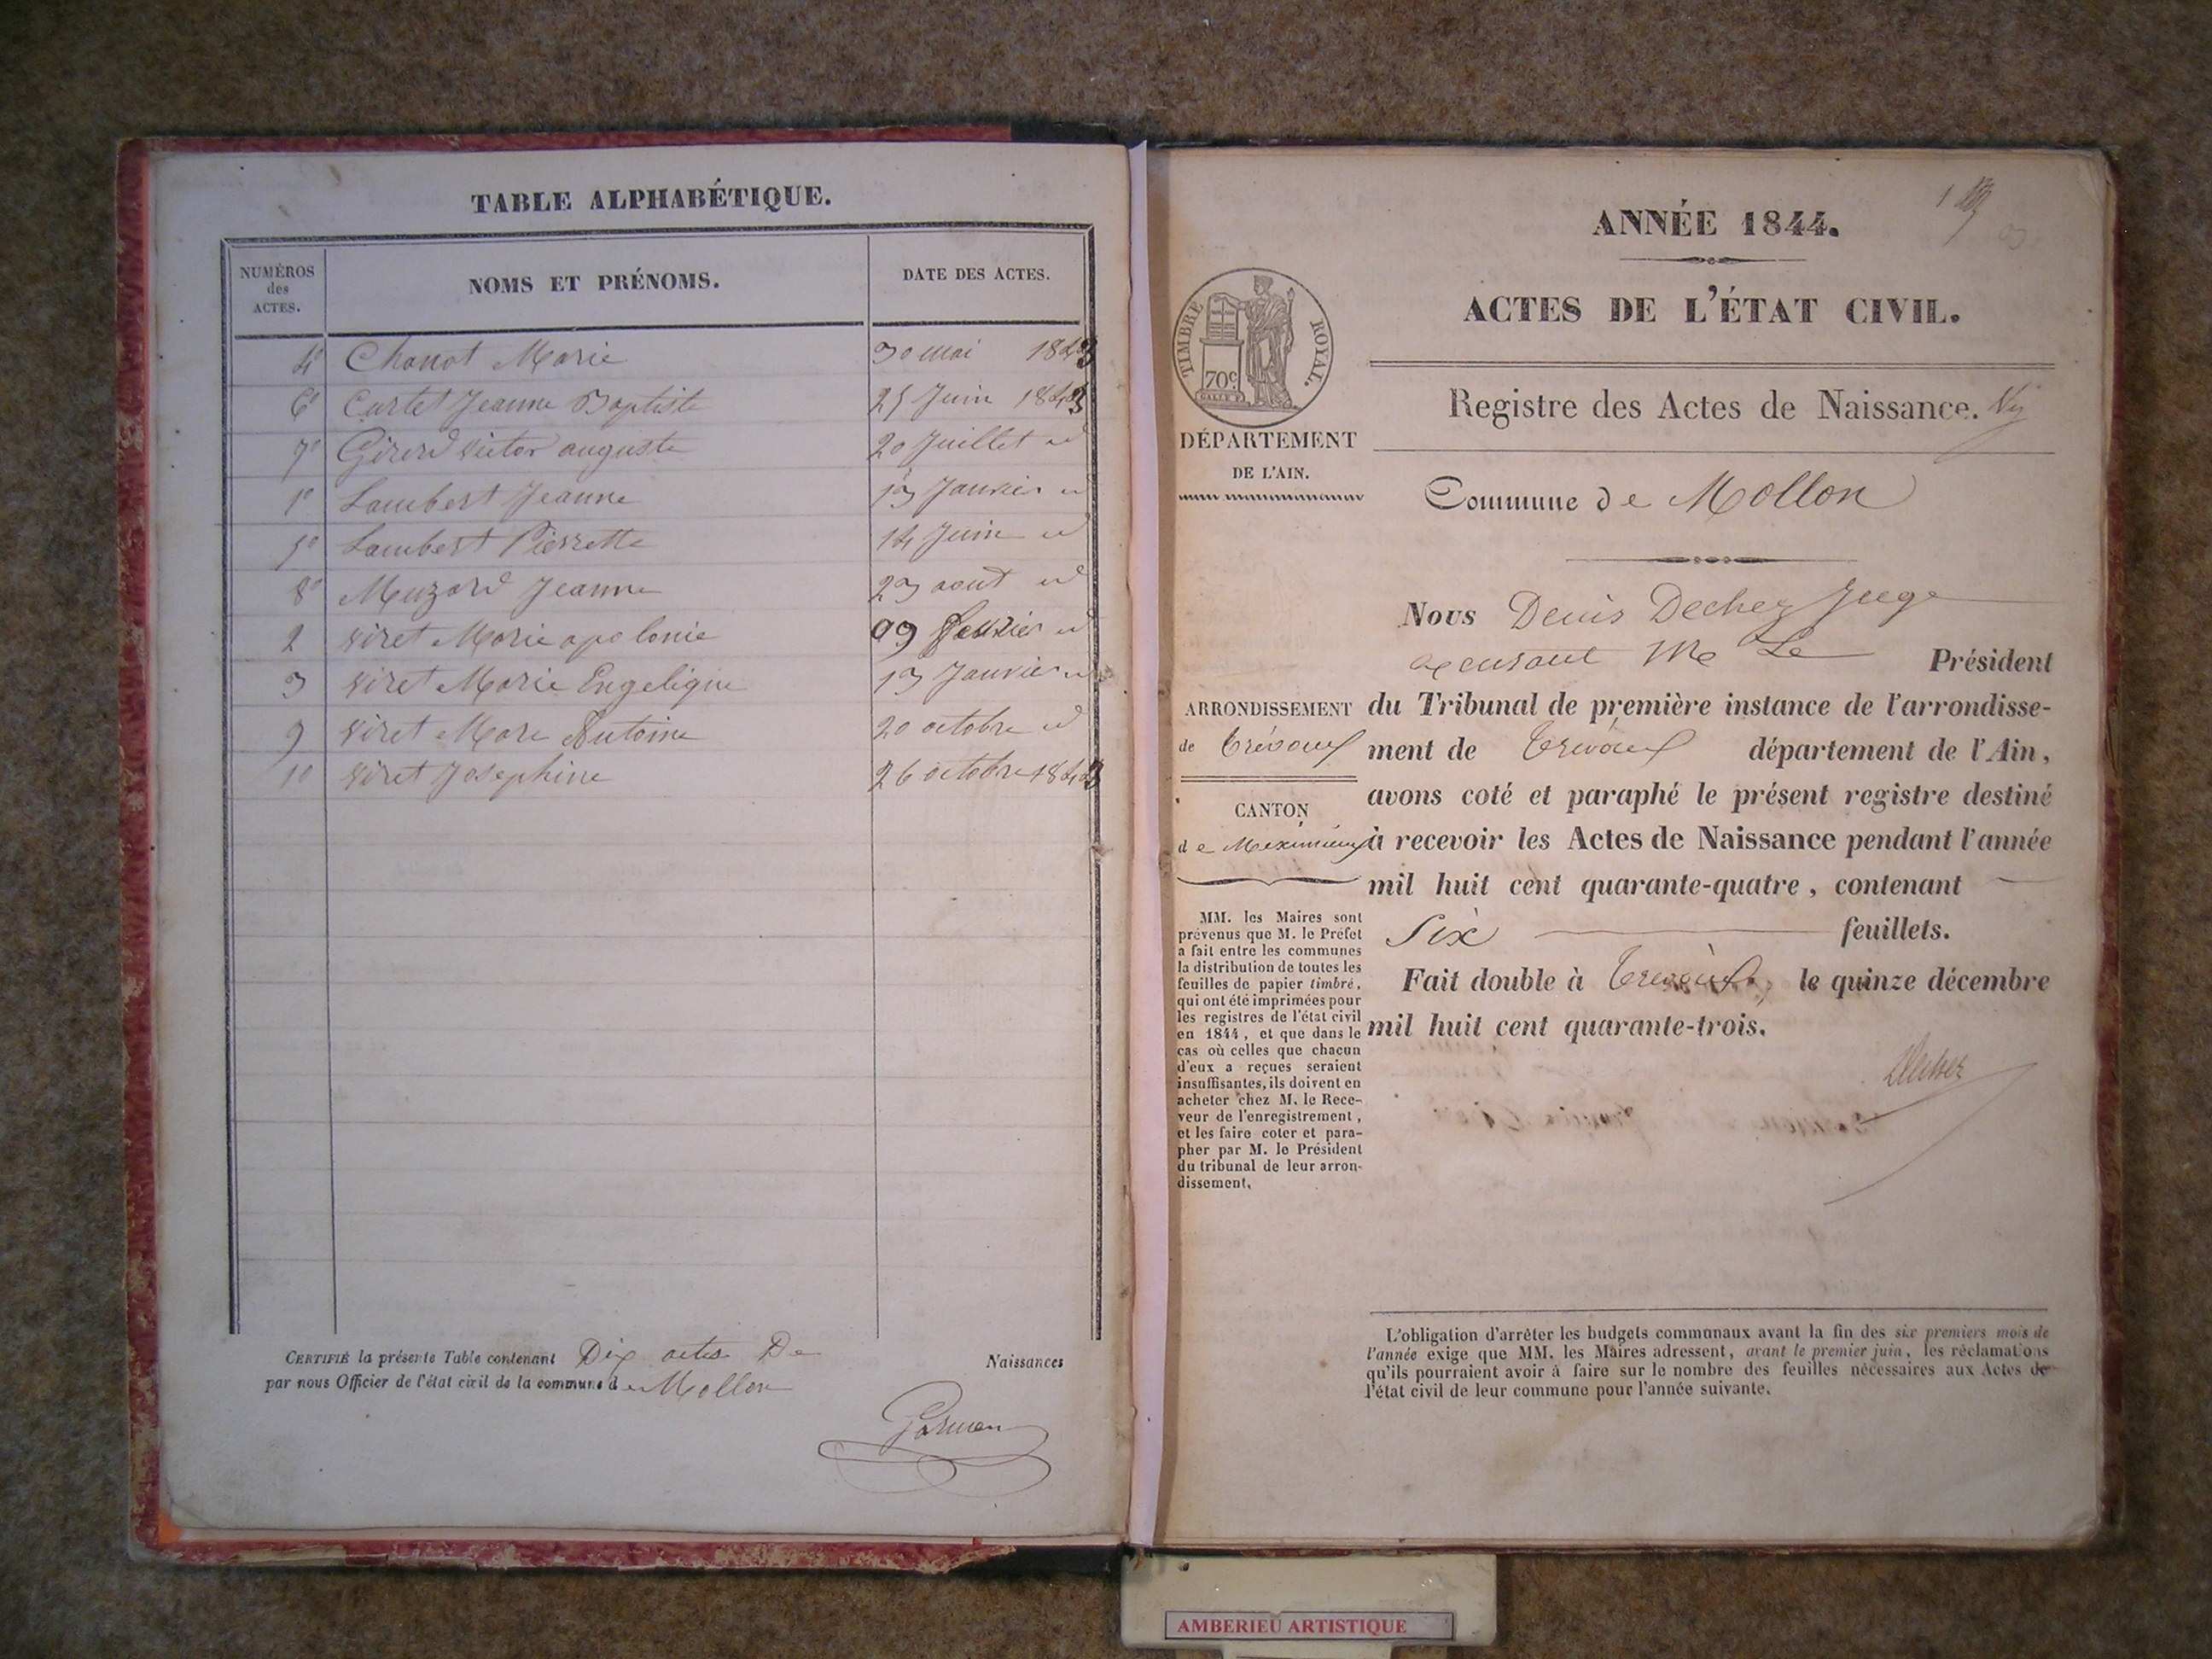 TABLE ALPHABÉTIQUE.
NUMÉROS
des
ACTES.
NOMS ET PRÉNOMS.
DATE DES ACTES.
4° Chanot Marie 30 mai 1843
6° Cartet Jeanne Baptiste 25 Juin 1843
7° Girerd victor auguste 20 Juillet id
1° Lambert Jeanne 13 Janvier id
5° Lambert Pierrette 14 Juin id
8° Muzard Jeanne 23 aout id
2 viret Marie apolonie 09 fevrier id
3 viret Marie Engelique 13 Janvier id
9 viret Marc Antoine 20 octobre id
10 viret Josephine 26 octobre 1843
CERTIFIÉ la présente Table contenant Dix actes De Naissances
par nous Officier de l'état civil de la commune de Mollon
ANNÉE 1844.
1
ACTES DE L'ÉTAT CIVIL.
TIMBRE ROYAL.
70c
Registre des Actes de Naissance.
DÉPARTEMENT
DE L'AIN.
Commune de Mollon
Nous Denis Dechez Juge
Me Le Président
du Tribunal de première instance de l'arrondisse-
ment de Trévoux département de l'Ain,
avons coté et paraphé le présent registre destiné
à recevoir les Actes de Naissance pendant l'année
mil huit cent quarante-quatre, contenant
Six feuillets.
Fait double à Trévoux, le quinze décembre
mil huit cent quarante-trois.
Dechez
ARRONDISSEMENT
de Trévoux
CANTON
de Meximieux
MM. les Maires sont
prévenus que M. le Préfet
a fait entre les communes
la distribution de toutes les
feuilles de papier timbré,
qui ont été imprimées pour
les registres de l'état civil
en 1844, et que dans le
cas où celles que chacun
d'eux a reçues seraient
insuffisantes, ils doivent en
acheter chez M. le Rece-
veur de l'enregistrement,
et les faire coter et para-
pher par M. le Président
du tribunal de leur arron-
dissement.
L'obligation d'arrêter les budgets communaux avant la fin des six premiers mois de
l'année exige que MM. les Maires adressent, avant le premier juin, les réclamations
qu'ils pourraient avoir à faire sur le nombre des feuilles nécessaires aux Actes de
l'état civil de leur commune pour l'année suivante.
AMBERIEU ARTISTIQUE